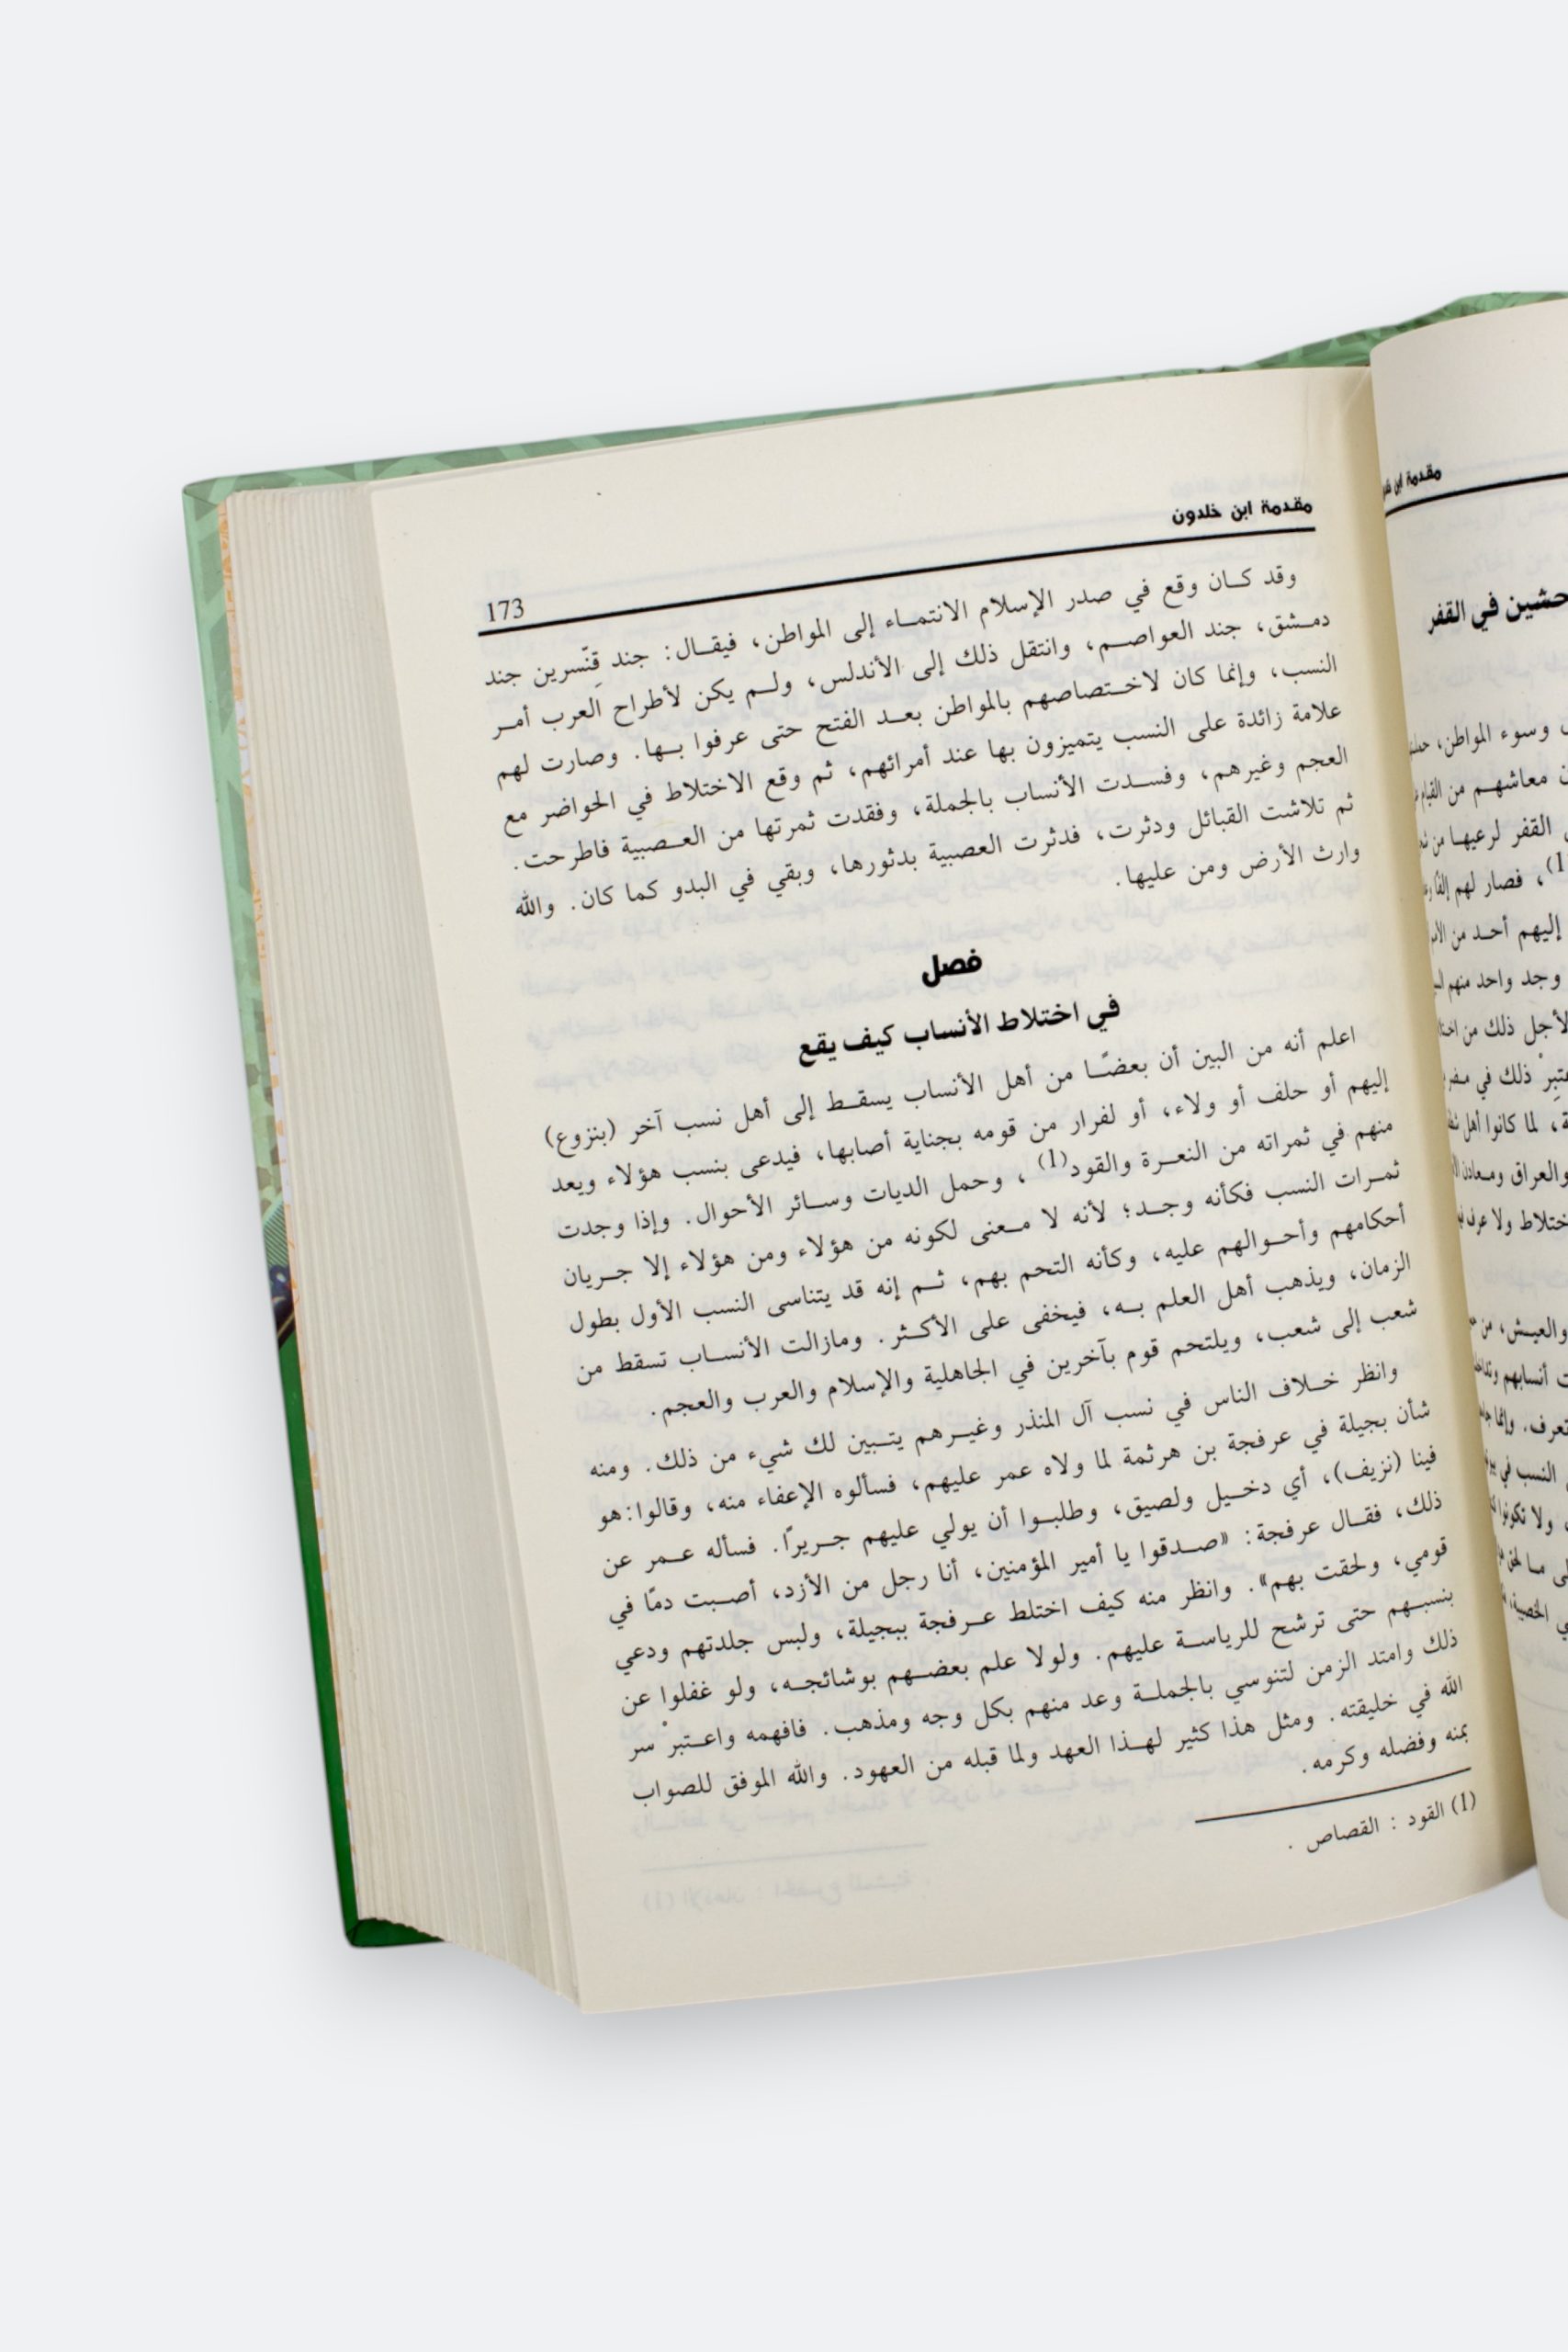 مقدمة ابن
حشين في القفر
وسوء المواطن، حملتهم
معاشهم من القيام
القفر لرعيها من
(1)، فصار لهم إلفًا
إليهم أحد من
وجد واحد منهم
لأجل ذلك من
ذلك في مضر
لما كانوا أهل
والعراق ومعادن
ختلاط ولا عرف
والعيش، من
أنسابهم
تعرف. وإنما
النسب في
ولا تكونوا
ما لحق
مقدمة ابن خلدون
173
وقد كان وقع في صدر الإسلام الانتماء إلى المواطن، فيقال: جند قِنّسرين جند
دمشق، جند العواصم، وانتقل ذلك إلى الأندلس، ولم يكن لأطراح العرب أمر
النسب، وإنما كان لاختصاصهم بالمواطن بعد الفتح حتى عرفوا بها. وصارت لهم
علامة زائدة على النسب يتميزون بها عند أمرائهم، ثم وقع الاختلاط في الحواضر مع
العجم وغيرهم، وفسدت الأنساب بالجملة، وفقدت ثمرتها من العصبية فاطرحت.
ثم تلاشت القبائل ودثرت، فدثرت العصبية بدثورها، وبقي في البدو كما كان. والله
وارث الأرض ومن عليها.
فصل
في اختلاط الأنساب كيف يقع
اعلم أنه من البين أن بعضًا من أهل الأنساب يسقط إلى أهل نسب آخر (بنزوع)
إليهم أو حلف أو ولاء، أو لفرار من قومه بجناية أصابها، فيدعى بنسب هؤلاء ويعد
منهم في ثمراته من النعرة والقود(1)، وحمل الديات وسائر الأحوال. وإذا وجدت
ثمرات النسب فكأنه وجد؛ لأنه لا معنى لكونه من هؤلاء ومن هؤلاء إلا جريان
أحكامهم وأحوالهم عليه، وكأنه التحم بهم، ثم إنه قد يتناسى النسب الأول بطول
الزمان، ويذهب أهل العلم به، فيخفى على الأكثر. ومازالت الأنساب تسقط من
شعب إلى شعب، ويلتحم قوم بآخرين في الجاهلية والإسلام والعرب والعجم.
وانظر خلاف الناس في نسب آل المنذر وغيرهم يتبين لك شيء من ذلك. ومنه
شأن بجيلة في عرفجة بن هرثمة لما ولاه عمر عليهم، فسألوه الإعفاء منه، وقالوا: هو
فينا (نزيف)، أي دخيل ولصيق، وطلبوا أن يولي عليهم جريرًا. فسأله عمر عن
ذلك، فقال عرفجة: «صدقوا يا أمير المؤمنين، أنا رجل من الأزد، أصبت دمًا في
قومي، ولحقت بهم». وانظر منه كيف اختلط عرفجة ببجيلة، ولبس جلدتهم ودعي
بنسبهم حتى ترشح للرياسة عليهم. ولولا علم بعضهم بوشائجه، ولو غفلوا عن
ذلك وامتد الزمن لتنوسي بالجملة وعد منهم بكل وجه ومذهب. فافهمه واعتبرْ سر
الله في خليقته. ومثل هذا كثير لهذا العهد ولما قبله من العهود. والله الموفق للصواب
بمنه وفضله وكرمه.
(1) القود : القصاص .